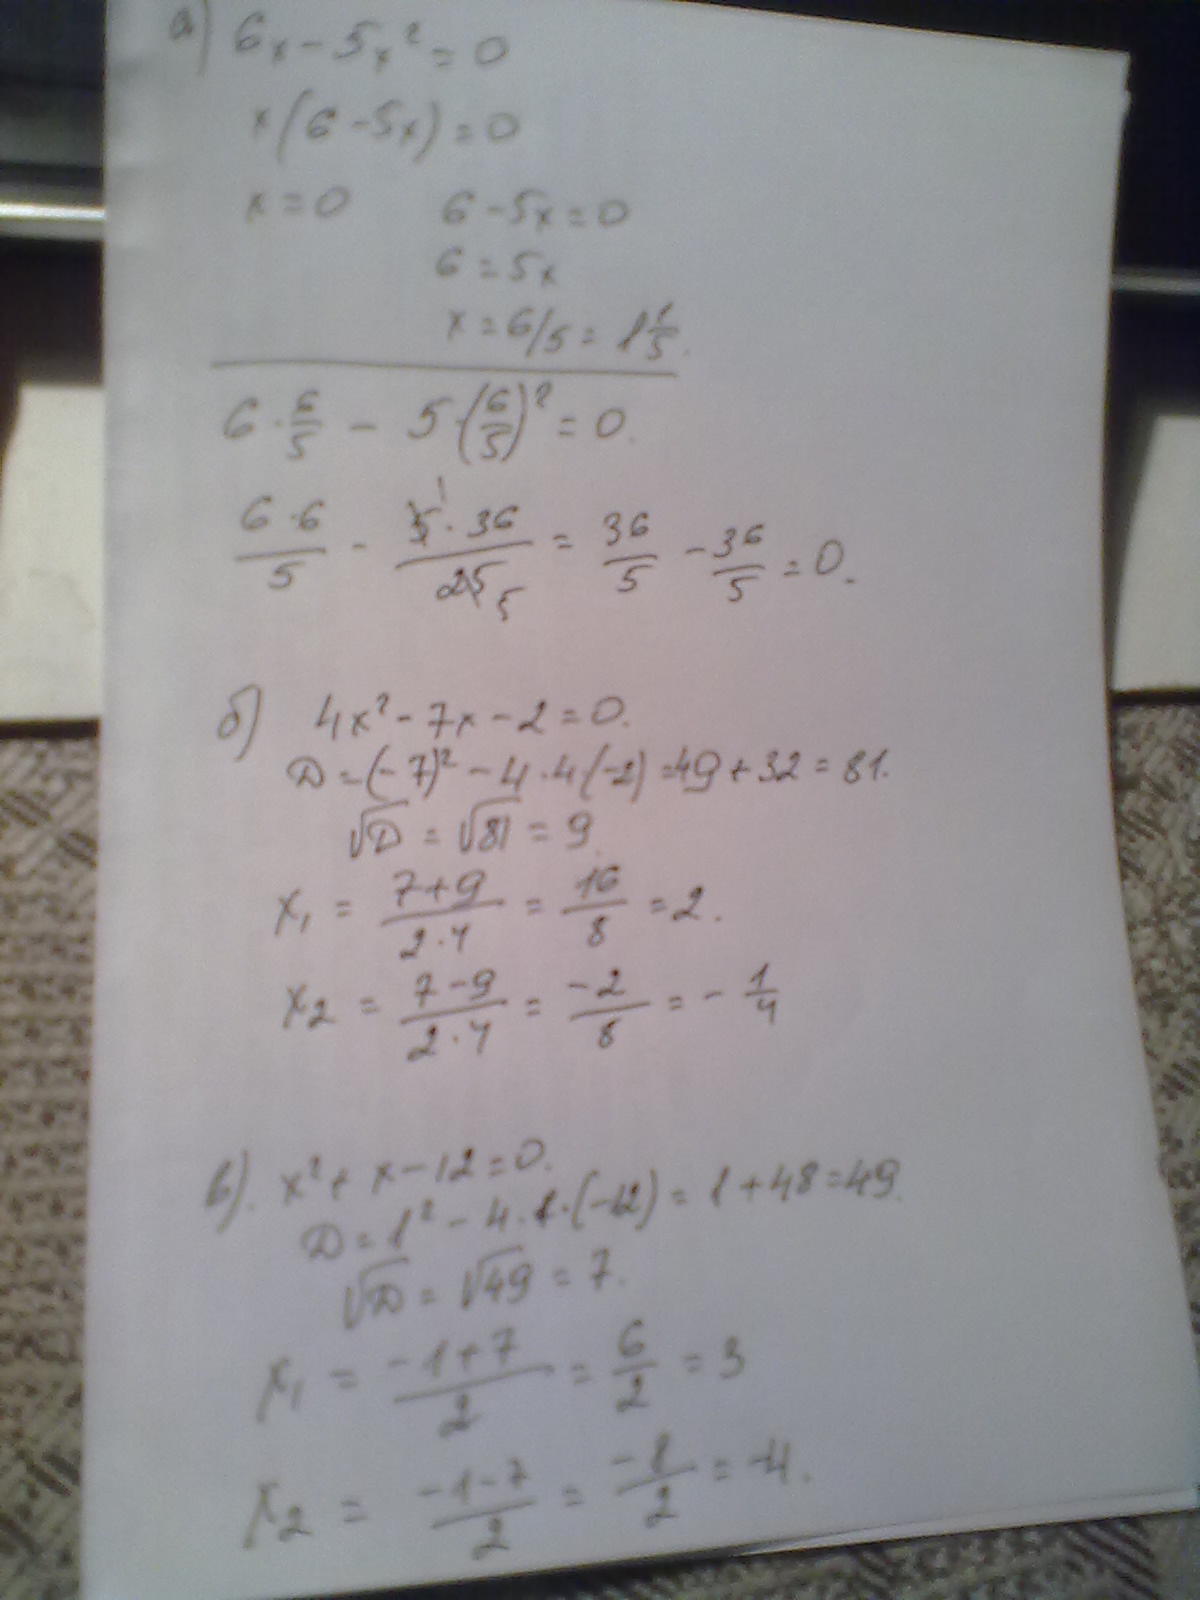 а) 6x - 5x² = 0
x(6 - 5x) = 0
x = 0 6 - 5x = 0
6 = 5x
x = 6/5 = 1 1/5.
6 · 6/5 - 5 · (6/5)² = 0.
6 · 6/5 - 5 1 · 36/25 5 = 36/5 - 36/5 = 0.
б) 4x² - 7x - 2 = 0.
D = (-7)² - 4 · 4 (-2) = 49 + 32 = 81.
√D = √81 = 9.
x₁ = 7+9/2·4 = 16/8 = 2.
x₂ = 7-9/2·4 = -2/8 = - 1/4
в). x² + x - 12 = 0.
D = 1² - 4 · 1 · (-12) = 1 + 48 = 49.
√D = √49 = 7.
x₁ = -1+7/2 = 6/2 = 3
x₂ = -1-7/2 = -8/2 = -4.